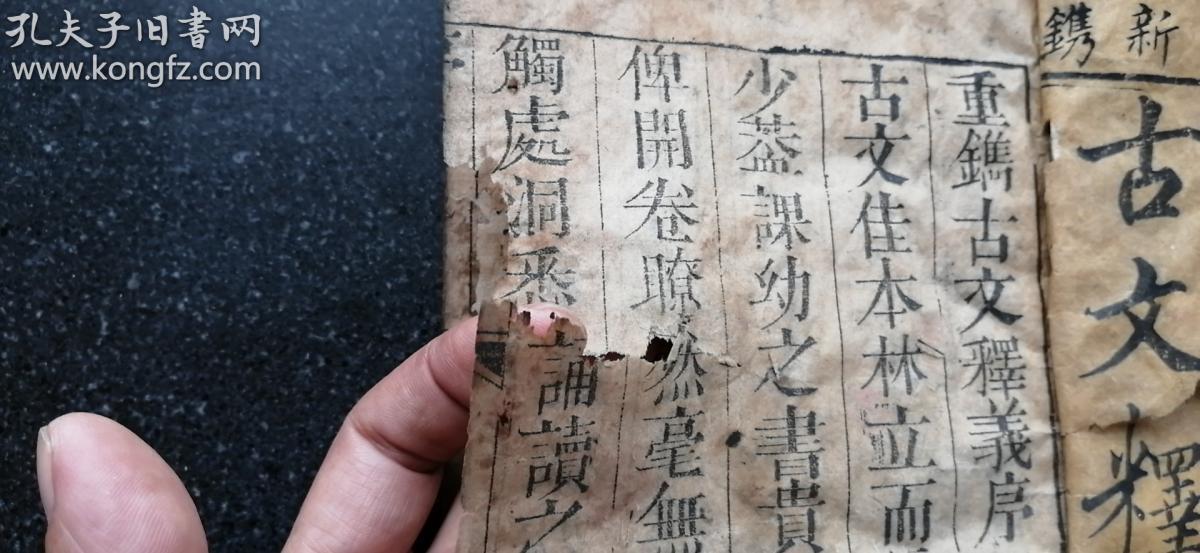 孔夫子旧书网
www.kongfz.com
新鐫
古文釋
重鐫古文釋義序
古文佳本林立而
少蓋課幼之書貴
俾開卷瞭然毫無
觸處洞悉誦讀之